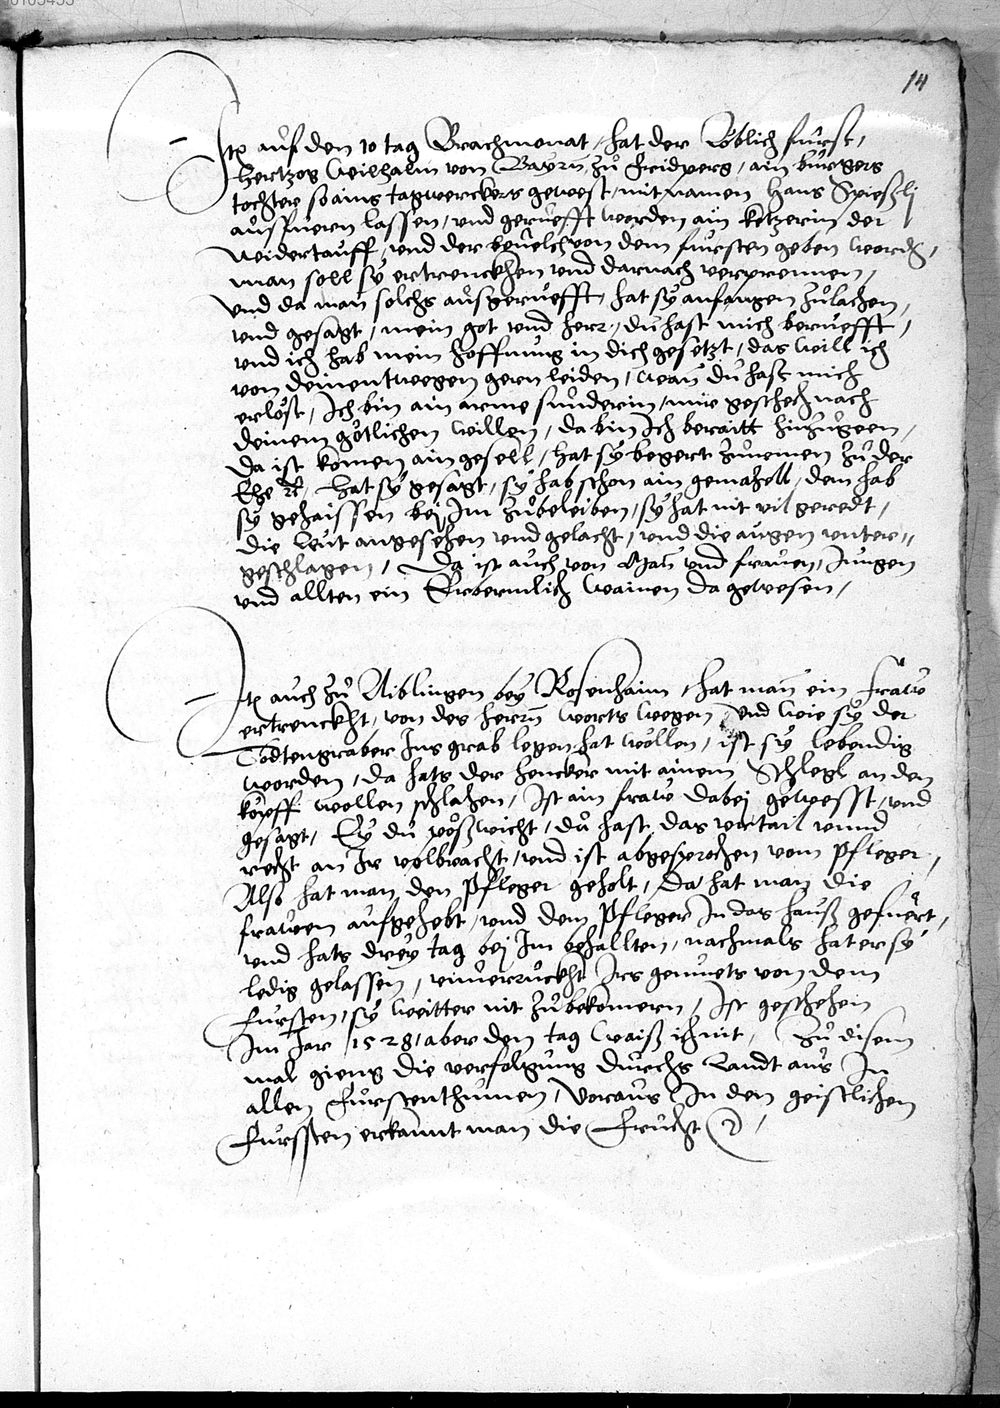 0105455
14
Itẽ auf den 10 tag Brachmonat / hat der Loblich furst,
Hertzog Wilhalm von Bayrñ, zů Fridperg / ain burgers
tochter so ains tagwerckers gewest / mit namen Hans Spießlj
außfuern lassen / vnd gerüefft worden ain ketzerin der
widertauff / vnd der beuelch von dem fursten geben wordñ,
man soll sy ertrenckhen vnd darnach verprennen,
vnd da man solchs ausgerüefft, hat sy anfangen zůlachen,
vnd gesagt / mein got vnd herr / du hast mich berüefft,
vnd ich hab mein hoffnung in dich gesetzt / das will ich
von deinentwegen gern leiden / wañ du hast mich
erlöst, Ich bin ain arme sunderin / mir geschech nach
deinem götlichen willen / da bin Ich berait hinzugeen,
Da ist komen ain gesell / hat sy begert zunemen zu der
Ehe ꝛc, hat sy gesagt, sy hab schon ain gemahell, dem hab
sy gehaissen bej Im zůbeleiben, sy hat nit vil geredt,
die leut angesehen vnd gelacht, vnd die augen vnter=
geschlagen, Da ist auch von Mañ vnd frauen, Jungen
vnd allten ein Erbermlich wainen da gewesen,
Itẽ auch zů Aiblingen bey Rosenhaim / hat mañ ein fraw
ertrenckht, von des herrñ worts wegen, Vnd wie sy der
Todtengraber Ins grab legen hat wollen, ist sy lebendig
worden, da hats der hencker mit ainem Schlegl an den
kopff wollen schlahen, Ist ain fraw dabej gewesst, vnd
gesagt, Ey du pößwicht, du hast das vrtail vnnd
recht an Ir volbracht, vnd ist abgesprochen vom Pfleger,
Also hat man den Pfleger geholt, Da hat man die
frawen aufgehebt, vnd dem Pfleger In das hauß gefüert,
vnd hats drey tag bej Im behallten, nachmals hat er sy
ledig gelassen, vnuerruckht Irs gemuets von dem
Fürsten, sy weitter nit zůbekömern, Ist geschehen
Im Jar 1528, aber den tag waiß ich nit, Zu disem
mal gieng die verfolgung durchs Landt aus In
allen Fürstenthumen, Voraus In den geistlichen
Furssten erkannt man die Frucht